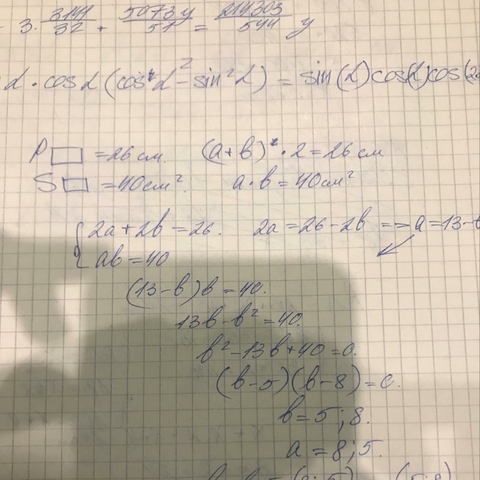 3. 3141/32 + 5073y/51 = 214303/544 y
α · cos α (cos² α - sin² α) = sin(α) cos(α) cos(2
P □ = 26 см. (a+b) · 2 = 26 см
S □ = 40 см². a · b = 40 см²
{ 2a + 2b = 26. 2a = 26 - 2b => a = 13 - b
ab = 40
(13 - b) b = 40.
13b - b² = 40.
b² - 13b + 40 = 0.
(b - 5)(b - 8) = 0.
b = 5; 8.
a = 8; 5.